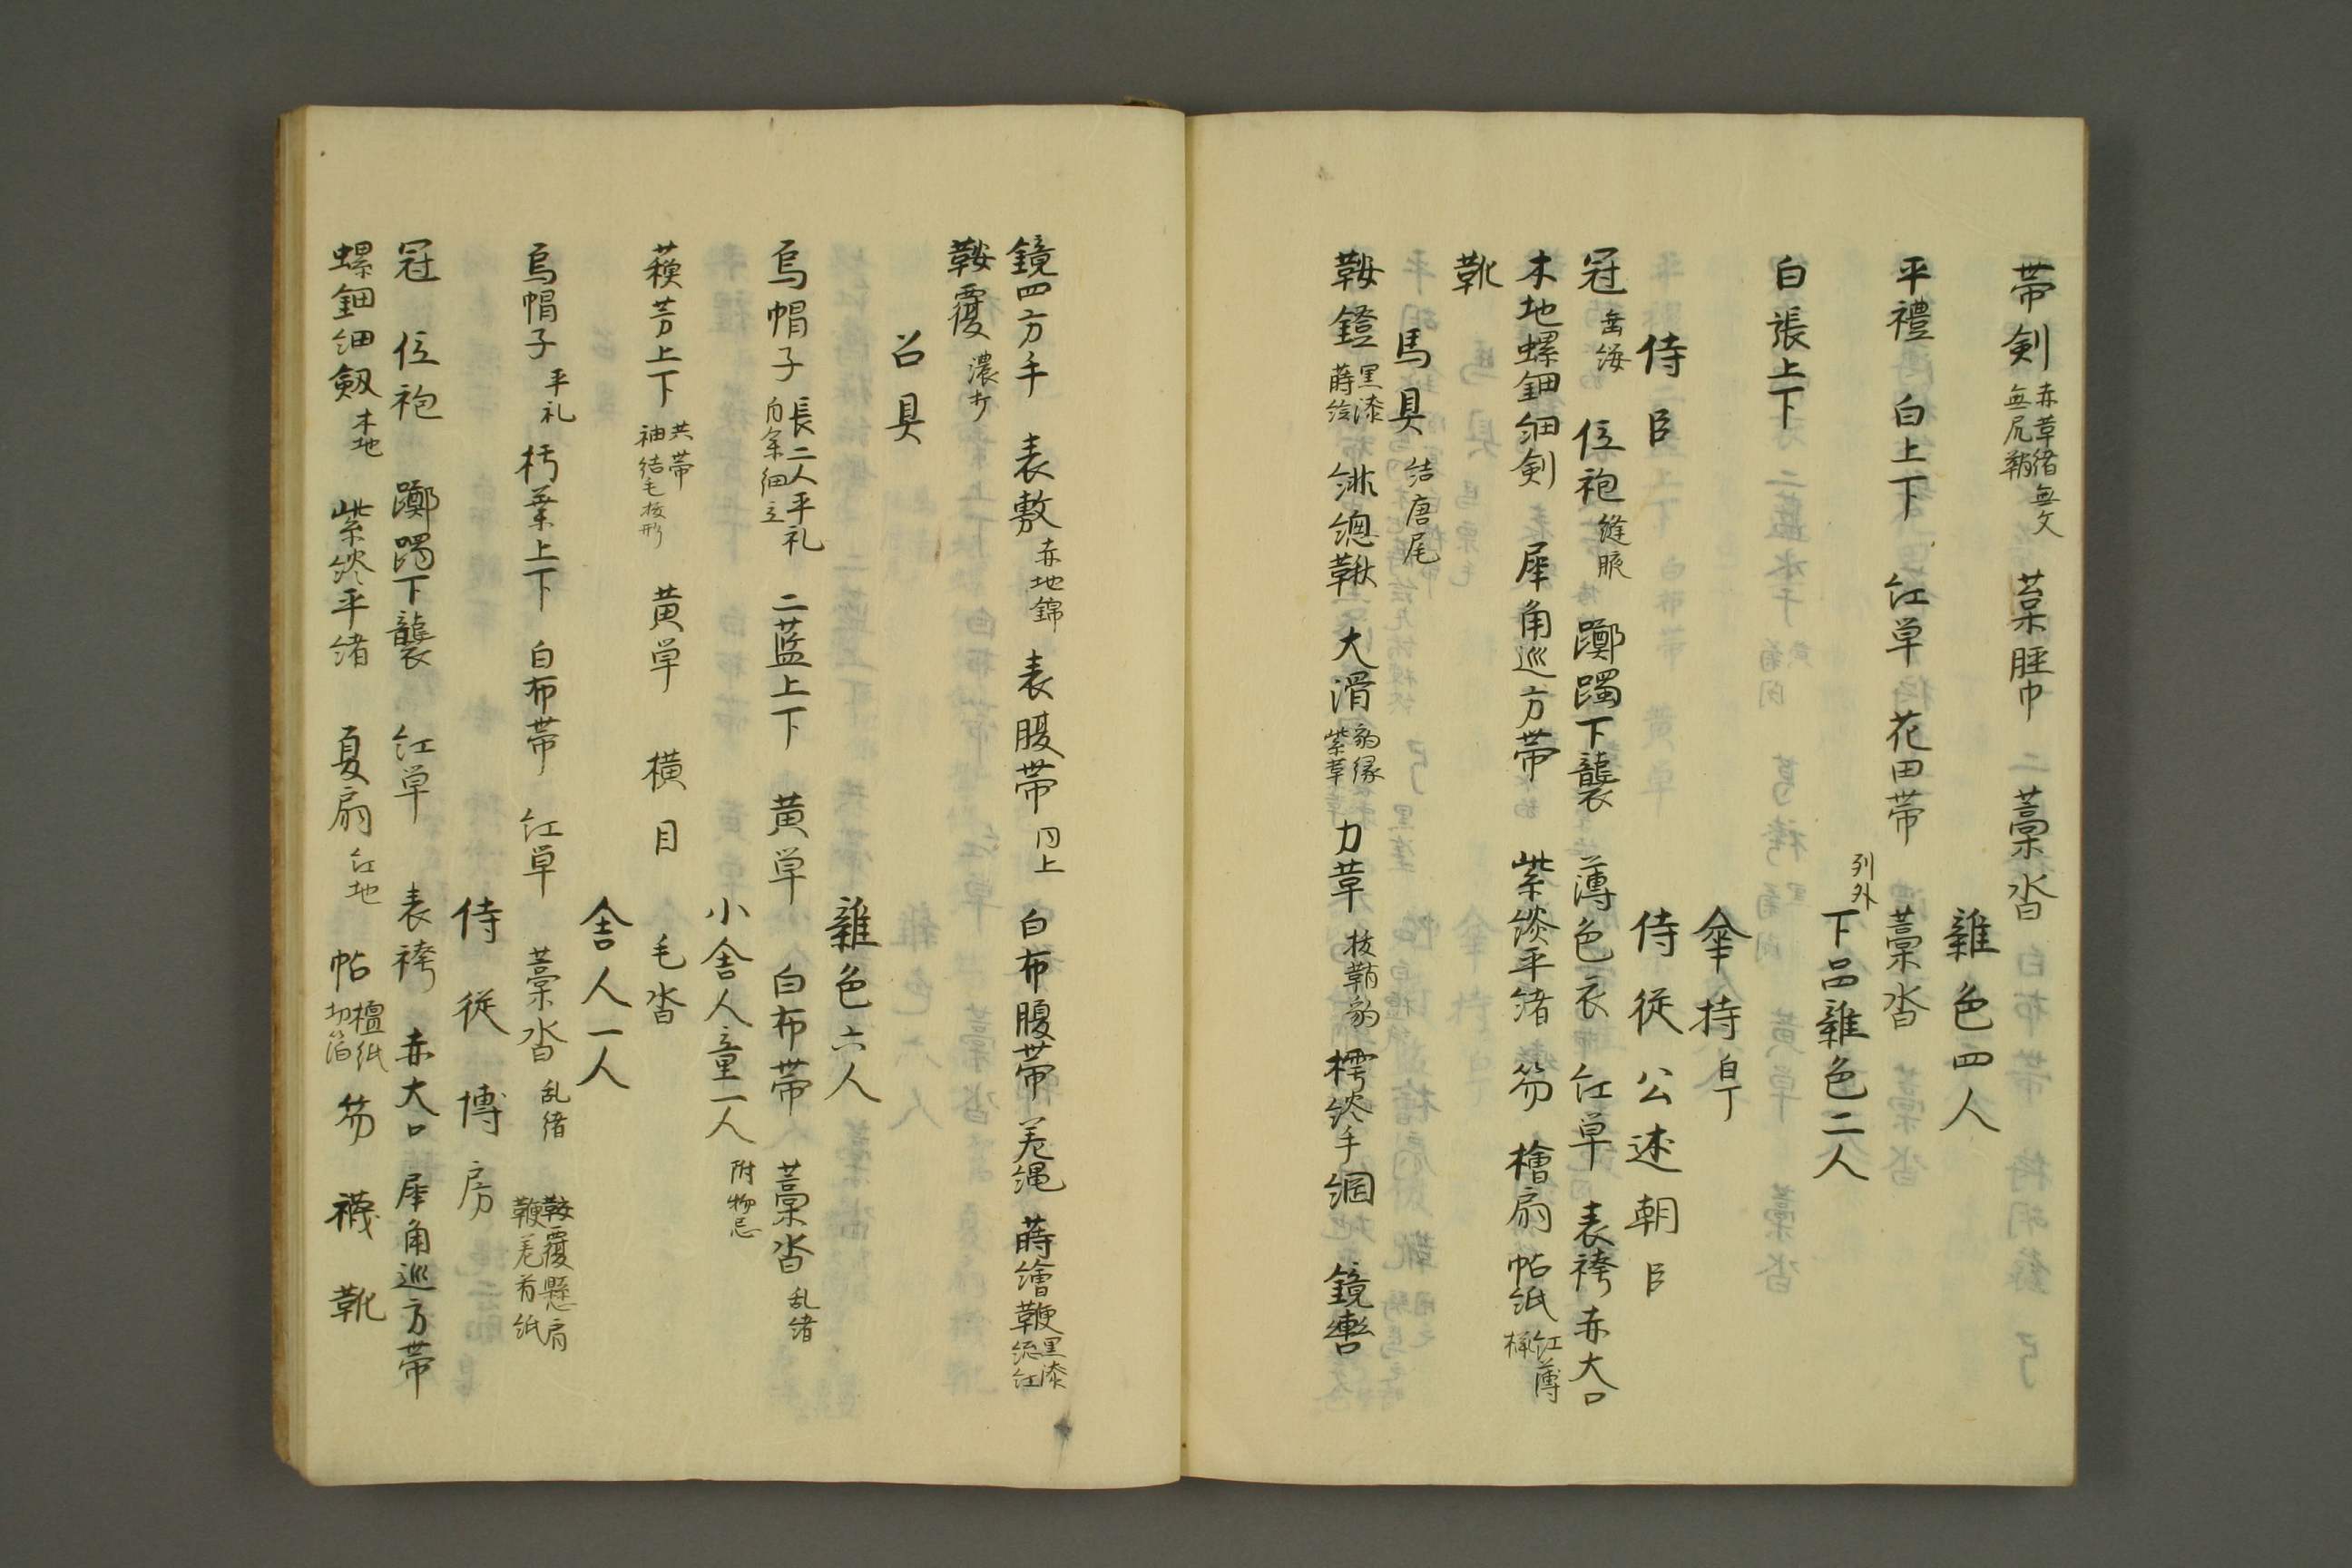 帯剣 赤革緒無文 無尻鞘 菜脛巾 二藁沓
雜色四人
平禮 白上下 紅単 花田帯 藁沓
列外 下品雜色二人
白張上下
傘持 白丁
侍臣 侍従公述朝臣
冠 垂纓 位袍 縫腋 躑躅下襲 薄色衣 紅単 表袴 赤大口
木地螺鈿細剣 犀角巡方帯 紫淡平緒 笏 檜扇 帖紙 紅薄様
靴
馬具 結唐尾
鞍鐙 黒漆蒔絵 緋總鞦 大滑 豹縁紫革 力革 抜鞘豹 樗絵手綱 鏡轡
鏡四方手 表敷 赤地錦 表腹帯 同上 白布腹帯 差縄 蒔繪鞭 黒漆
鞍覆 濃打
召具
雜色六人
烏帽子 長二人平礼 自余細立 二藍上下 黄単 白布帯 藁沓 乱緒
小舎人童一人 附物忌
蘓芳上下 共帯 袖結毛抜形 黄単 横目 毛沓
舎人一人
烏帽子 平礼 朽葉上下 白布帯 紅単 藁沓 乱緒 鞍覆懸肩
侍従 博房
冠 位袍 躑躅下襲 紅単 表袴 赤大口 犀角巡方帯
螺鈿細劔 木地 紫淡平緒 夏扇 紅地 帖 檀紙切箔 笏 襪 靴